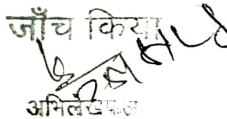 जाँच किया
अभिलेखपाल